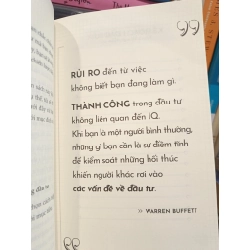 RỦI RO đến từ việc
không biết bạn đang làm gì.
THÀNH CÔNG trong đầu tư
không liên quan đến IQ.
Khi bạn là một người bình thường,
những gì bạn cần là sự điềm tĩnh
để kiểm soát những hối thúc
khiến người khác rơi vào
các vấn đề về đầu tư.
» WARREN BUFFETT